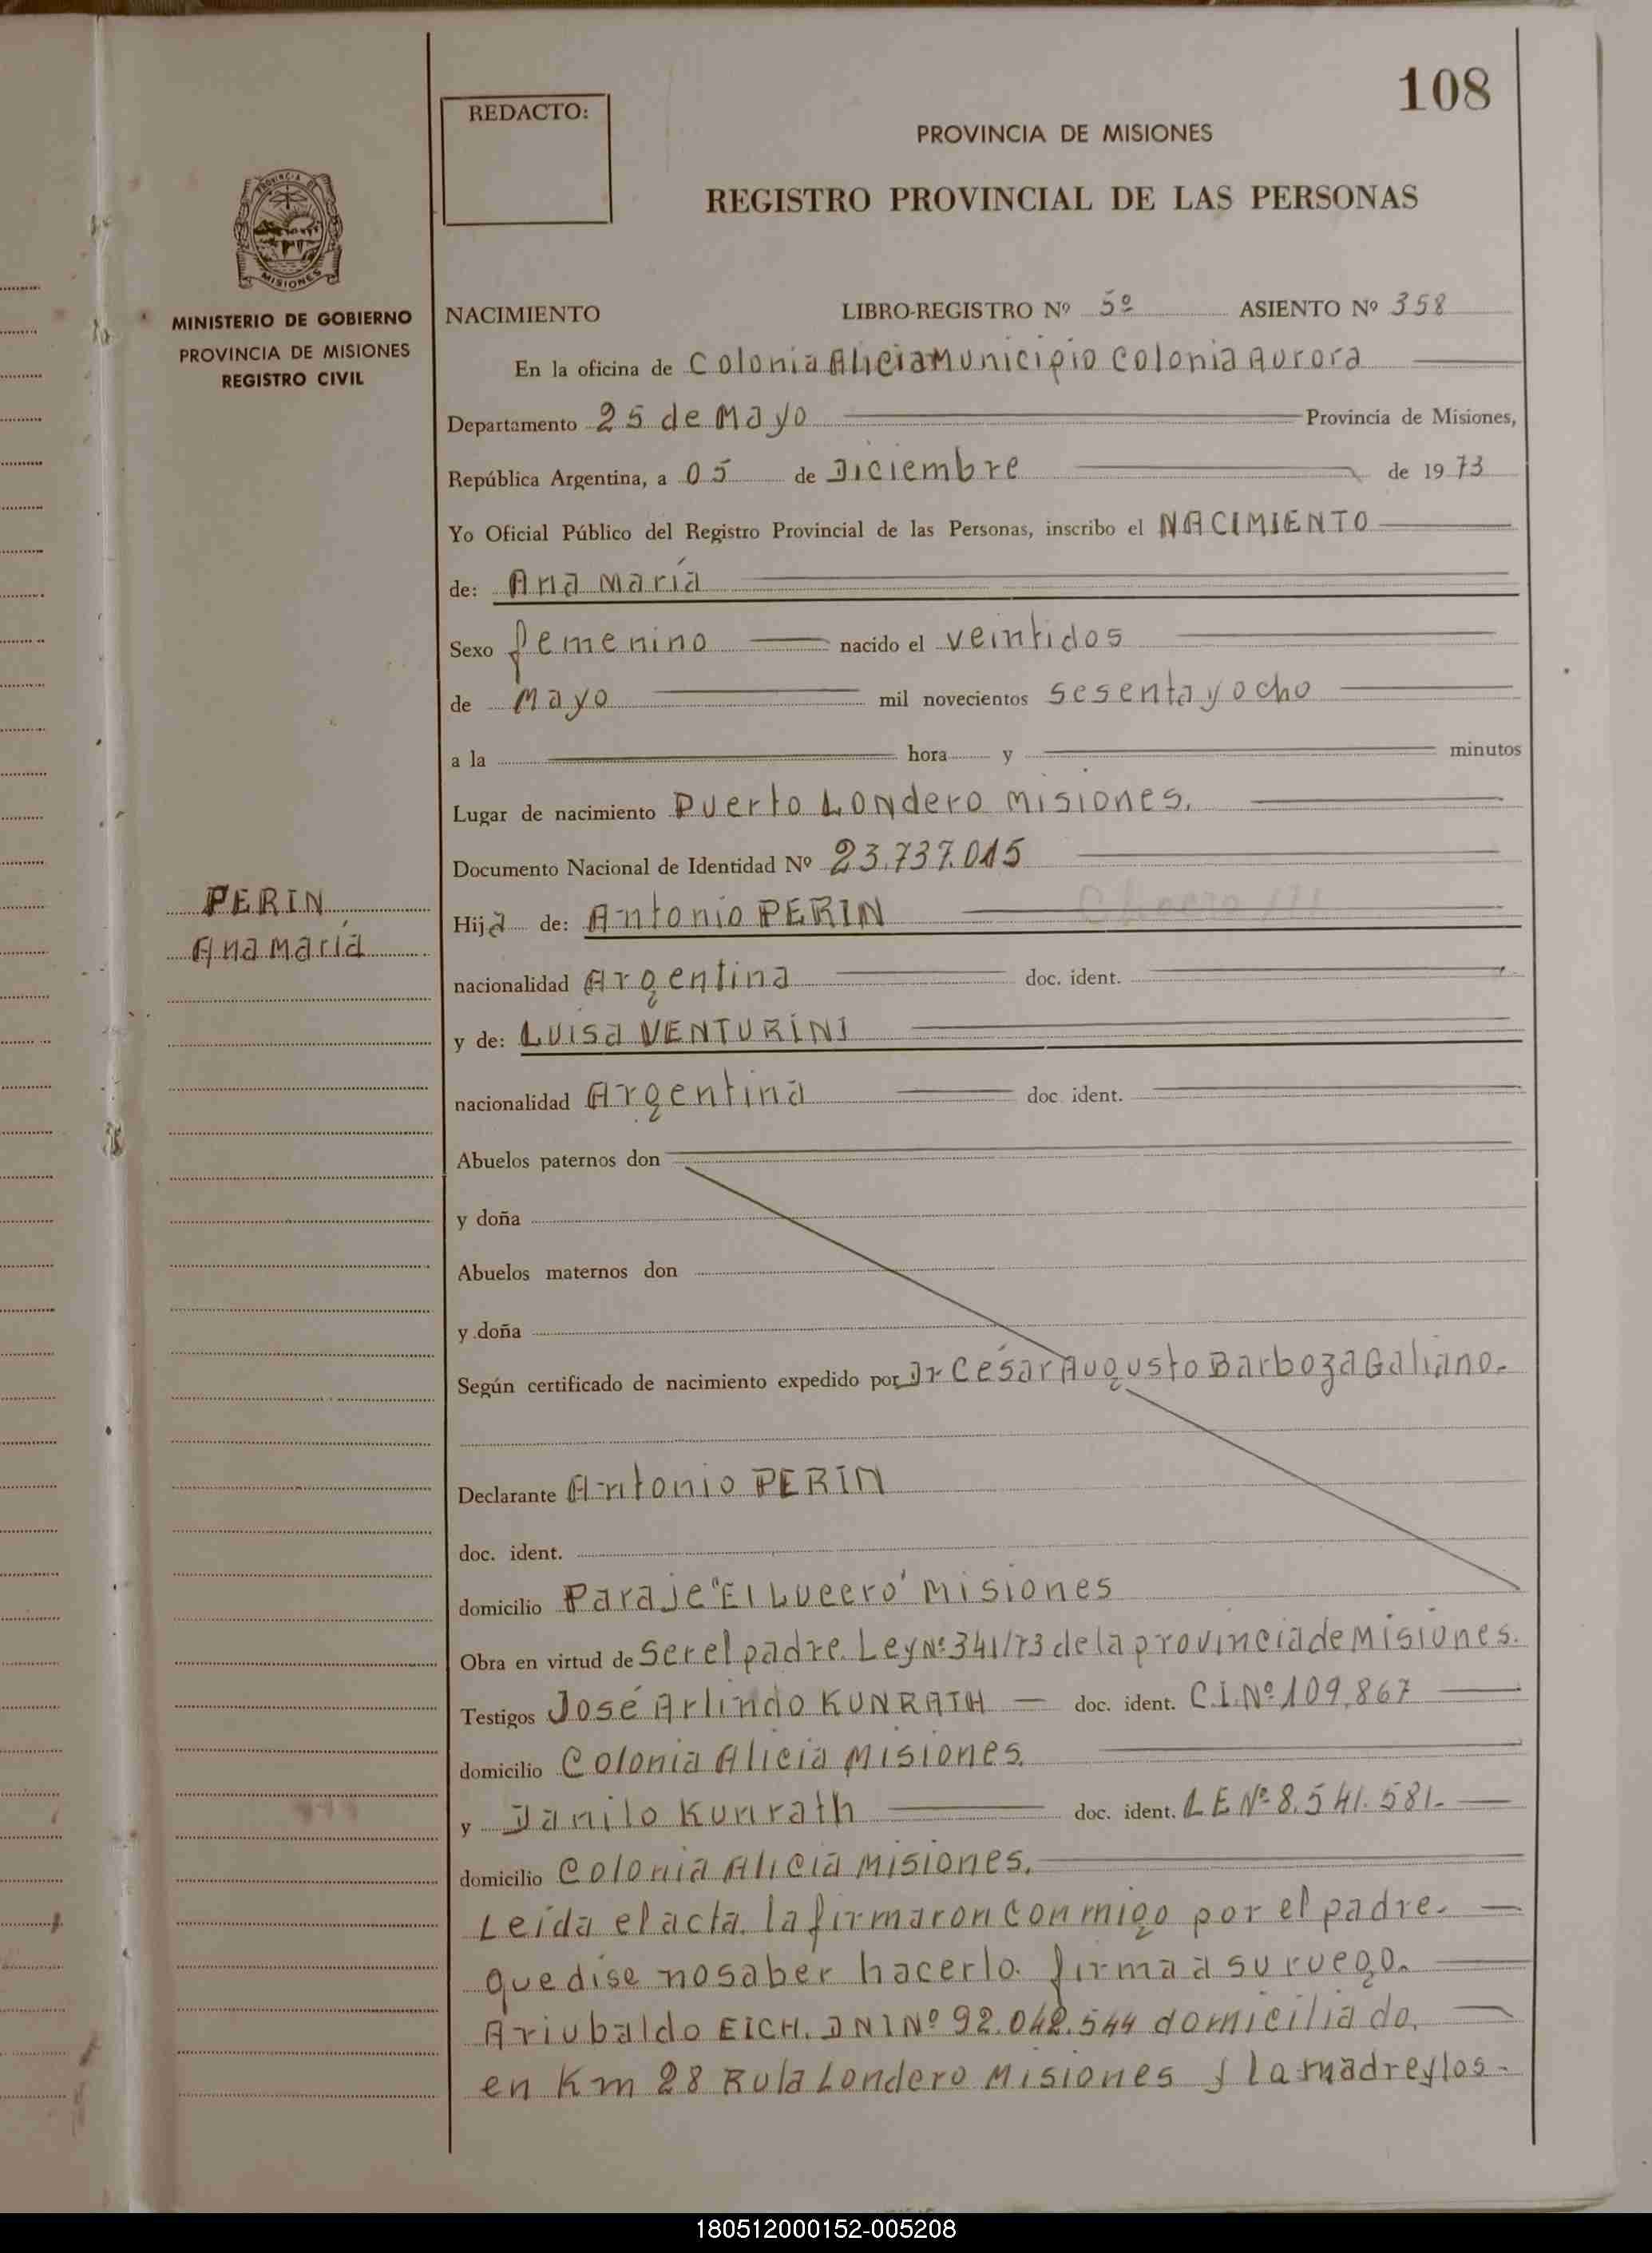 108
REDACTO:
PROVINCIA DE MISIONES
REGISTRO PROVINCIAL DE LAS PERSONAS
PROVINCIA DE
MISIONES
MINISTERIO DE GOBIERNO
PROVINCIA DE MISIONES
REGISTRO CIVIL
NACIMIENTO LIBRO-REGISTRO Nº 5º ASIENTO Nº 358
En la oficina de Colonia Alicia Municipio Colonia Aurora
Departamento 25 de Mayo Provincia de Misiones,
República Argentina, a 05 de Diciembre de 1973
Yo Oficial Público del Registro Provincial de las Personas, inscribo el NACIMIENTO
de: Ana María
Sexo femenino nacido el veintidos
de Mayo mil novecientos sesenta y ocho
a la hora y minutos
Lugar de nacimiento Puerto Londero Misiones.
Documento Nacional de Identidad Nº 23.737.015
PERIN
Ana María
Hija de: Antonio PERIN
nacionalidad Argentina doc. ident.
y de: Luisa VENTURINI
nacionalidad Argentina doc. ident.
Abuelos paternos don
y doña
Abuelos maternos don
y doña
Según certificado de nacimiento expedido por Dr César Augusto Barboza Galiano.
Declarante Antonio PERIN
doc. ident.
domicilio Paraje "El Lucero" Misiones
Obra en virtud de Ser el padre. Ley Nº 341/73 de la provincia de Misiones.
Testigos José Arlindo KUNRATH doc. ident. C.I. Nº 109.867
domicilio Colonia Alicia Misiones.
y Danilo Kunrath doc. ident. LE Nº 8.541.581.
domicilio Colonia Alicia Misiones.
Leída el acta. la firmaron conmigo por el padre.
que dise no saber hacerlo. firma a su ruego.
Ariubaldo EICH. DNI Nº 92.042.544 domiciliado.
en Km 28 Ruta Londero Misiones y la madre y los
180512000152-005208